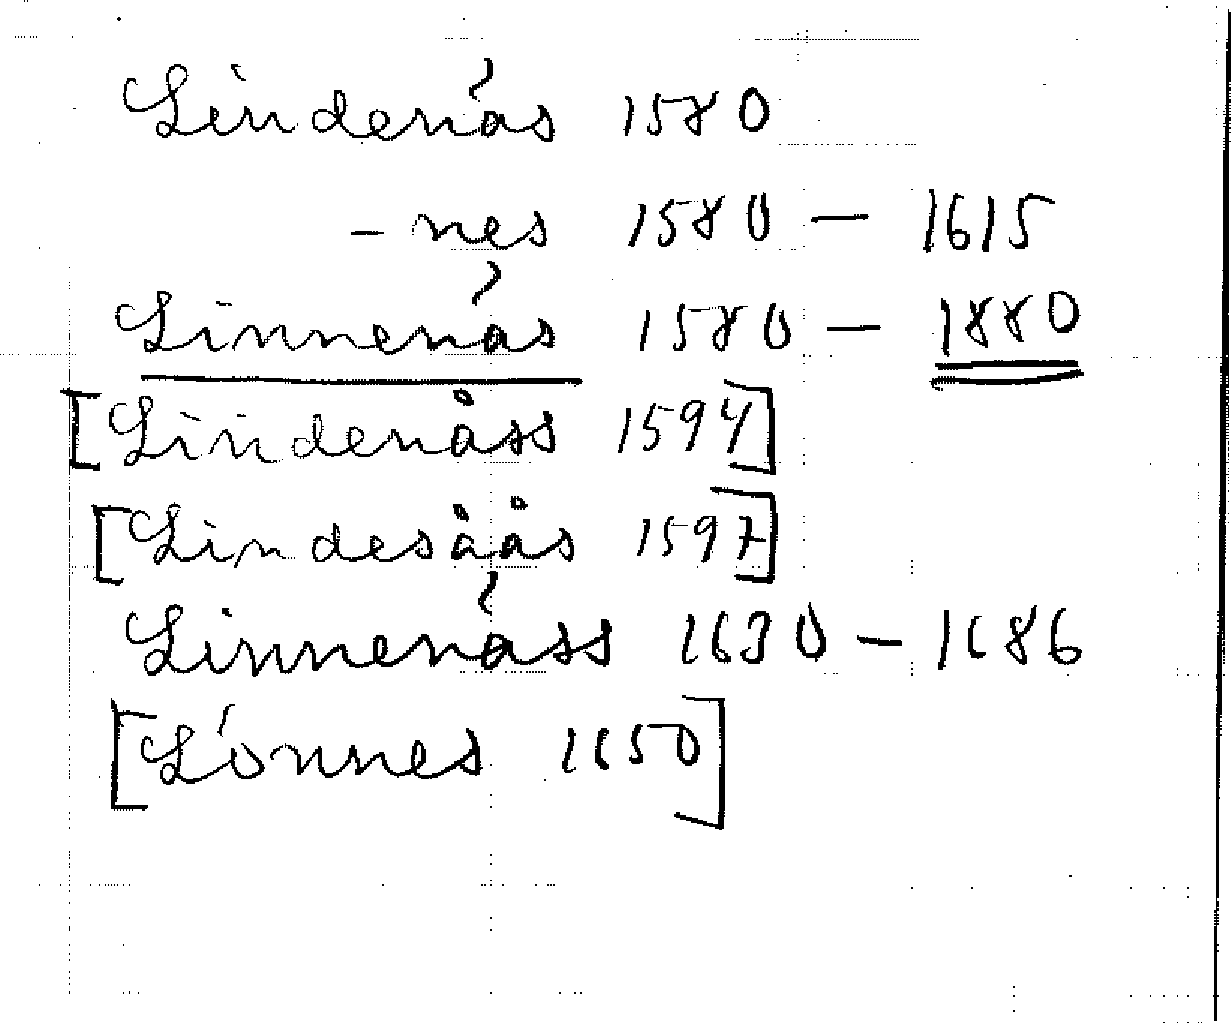 Lindenäs 1580
- nes 1580 — 1615
Linnenäs 1580 — 1880
[Lindenåss 1594]
[Lindesåås 1597]
Linnenäss 1630 — 1686
[Lönnes 1650]